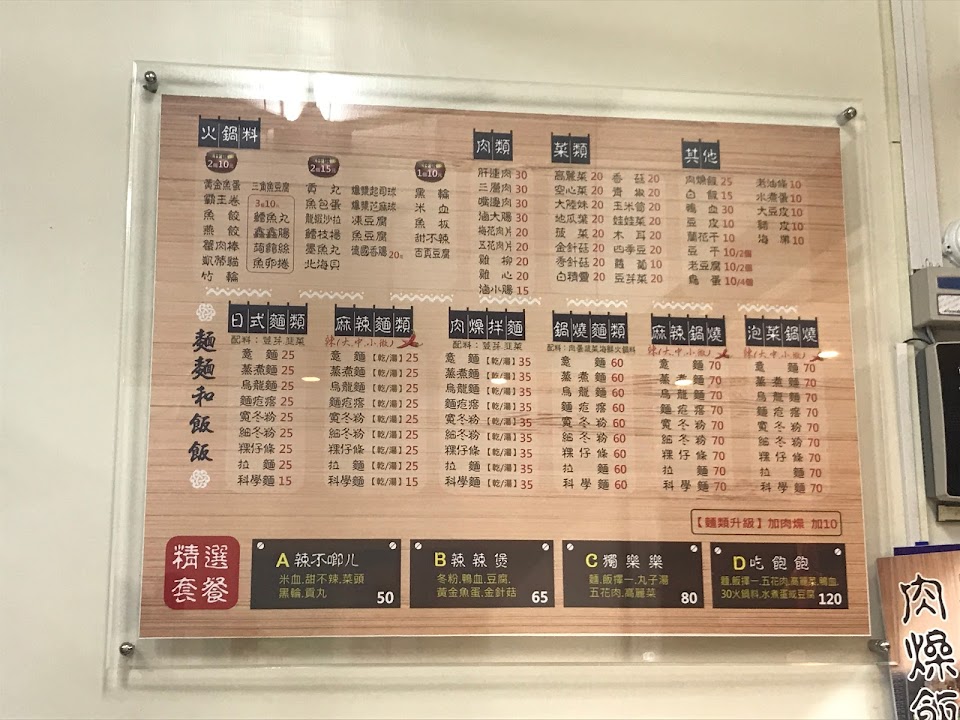 火鍋料
2個10元
黃金魚蛋
霸王卷
魚餃
蟹肉棒
竹輪
三角魚豆腐
3個10元
鱈魚丸
鑫鑫腸
蒟蒻絲
魚卵捲
2個15元
貢丸
魚包蛋
龍蝦沙拉
鱈枝楊
墨魚丸
北海貝
爆漿起司球
爆漿芝麻球
凍豆腐
魚豆腐
德國香腸 20元
1個10元
黑輪
米血
魚板
甜不辣
百頁豆腐
肉類
肝連肉 30
三層肉 30
嘴邊肉 30
滷大腸 30
梅花肉片 20
五花肉片 20
雞柳 20
雞心 20
滷小腸 15
菜類
高麗菜 20
空心菜 20
大陸妹 20
地瓜葉 20
菠菜 20
金針菇 20
杏針菇 20
白精靈 20
香菇 20
青椒 20
玉米筍 20
娃娃菜 20
木耳 20
四季豆 20
蘿蔔 10
豆芽菜 20
其他
肉燥飯 25
白飯 15
鴨血 30
豆皮 10
蘭花干 10
豆干 10/2個
老豆腐 10/2個
鳥蛋 10/4個
老油條 10
水煮蛋 10
大豆皮 10
餃皮 10
海帶 10
麵麵和飯飯
日式麵類
配料：荳芽韮菜
意麵 25
蒸煮麵 25
烏龍麵 25
麵疙瘩 25
寬冬粉 25
細冬粉 25
粿仔條 25
拉麵 25
科學麵 15
麻辣麵類
辣(大.中.小.微)
意麵【乾/湯】25
蒸煮麵【乾/湯】25
烏龍麵【乾/湯】25
麵疙瘩【乾/湯】25
寬冬粉【乾/湯】25
細冬粉【乾/湯】25
粿仔條【乾/湯】25
拉麵【乾/湯】25
科學麵【乾/湯】15
肉燥拌麵
配料：荳芽韮菜
意麵【乾/湯】35
蒸煮麵【乾/湯】35
烏龍麵【乾/湯】35
麵疙瘩【乾/湯】35
寬冬粉【乾/湯】35
細冬粉【乾/湯】35
粿仔條【乾/湯】35
拉麵【乾/湯】35
科學麵【乾/湯】35
鍋燒麵類
配料：肉蛋蔬菜海鮮火鍋料
意麵 60
蒸煮麵 60
烏龍麵 60
麵疙瘩 60
寬冬粉 60
細冬粉 60
粿仔條 60
拉麵 60
科學麵 60
麻辣鍋燒
辣(大.中.小.微)
意麵 70
蒸煮麵 70
烏龍麵 70
麵疙瘩 70
寬冬粉 70
細冬粉 70
粿仔條 70
拉麵 70
科學麵 70
泡菜鍋燒
辣(大.中.小.微)
意麵 70
蒸煮麵 70
烏龍麵 70
麵疙瘩 70
寬冬粉 70
細冬粉 70
粿仔條 70
拉麵 70
科學麵 70
【麵類升級】加肉燥 加10
精選
套餐
A辣不啷ㄦ
米血.甜不辣.菜頭
黑輪.貢丸
50
B辣辣煲
冬粉.鴨血.豆腐.
黃金魚蛋.金針菇
65
C獨樂樂
麵.飯擇一.丸子湯
五花肉.高麗菜
80
D吃飽飽
麵.飯擇一.五花肉.高麗菜.鴨血.
30火鍋料.水煮蛋或豆腐
120
肉燥飯